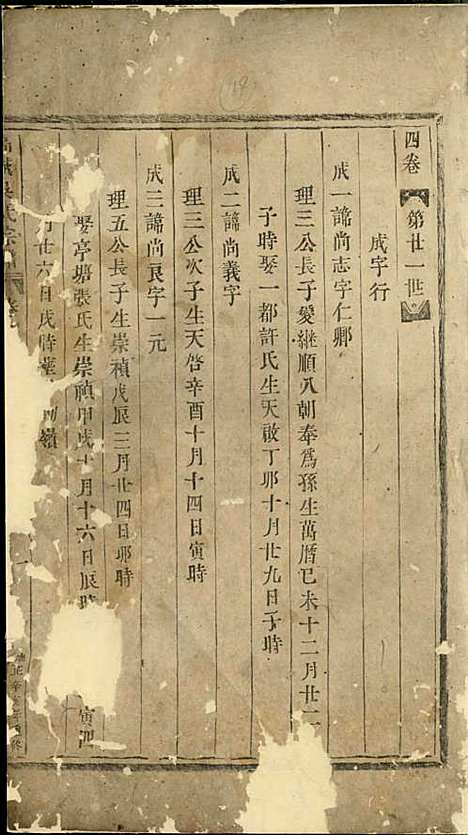 19
四卷
第廿一世
成字行
成一諱尚志字仁卿
理三公長子爰継順八朝奉為孫生萬曆己未十二月廿二
子時娶一都許氏生天啟丁卯十月廿九日子時
成二諱尚義字
理三公次子生天啓辛酉十月十四日寅時
成三諱尚良字一元
理五公長子生崇禎戊辰三月廿四日卯時
娶亭塘張氏生崇禎甲戌十月十六日辰時
寅
月廿六日戌時
嶺
氏宗